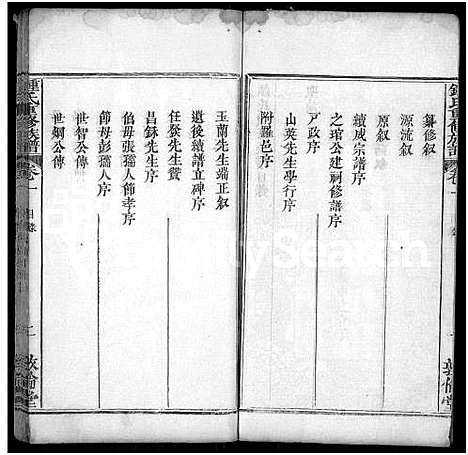 鍾氏重修族譜
卷一
纂修叙
源流叙
原叙
續成宗譜序
之琯公建祠修譜序
戸政序
山英先生學行序
附羅邑序
敦倫堂
玉蘭先生端正叙
遺後續譜立碑序
任癸先生贊
昌錸先生序
伯母張孺人節孝序
節母彭孺人序
世智公傳
世炯公傳
鍾氏重修族譜
卷一
目錄
二
敦倫堂
FamilySearch